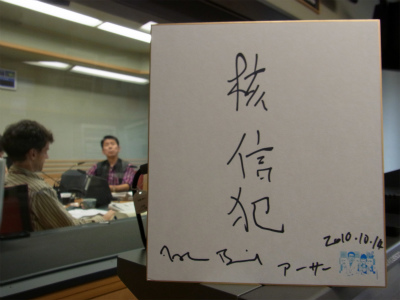 核信犯
アーサー
2010.10.14